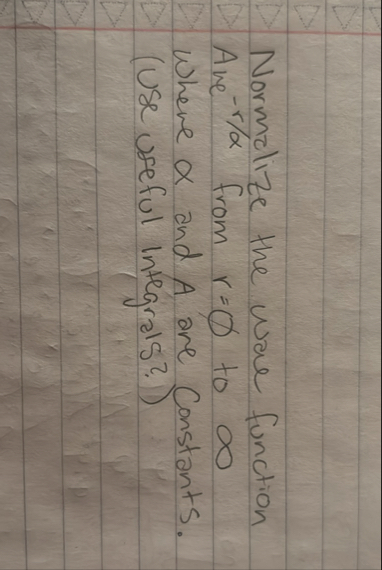 Normalize the wave function
Are^-r/α from r=Ø to ∞
Where α and A are Constants.
(Use useful Integrals?)